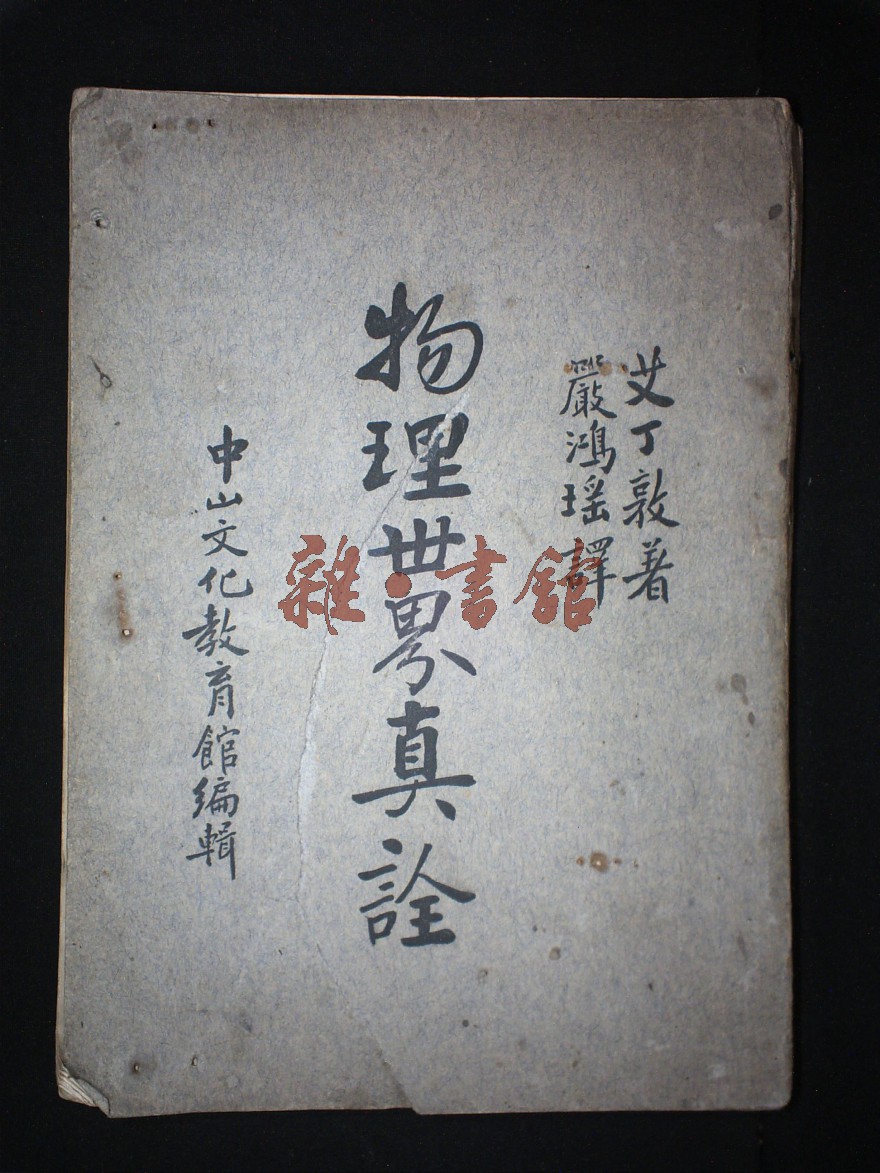 艾丁敦著
嚴鴻瑤譯
物理世界真詮
中山文化教育館編輯
雜·書館